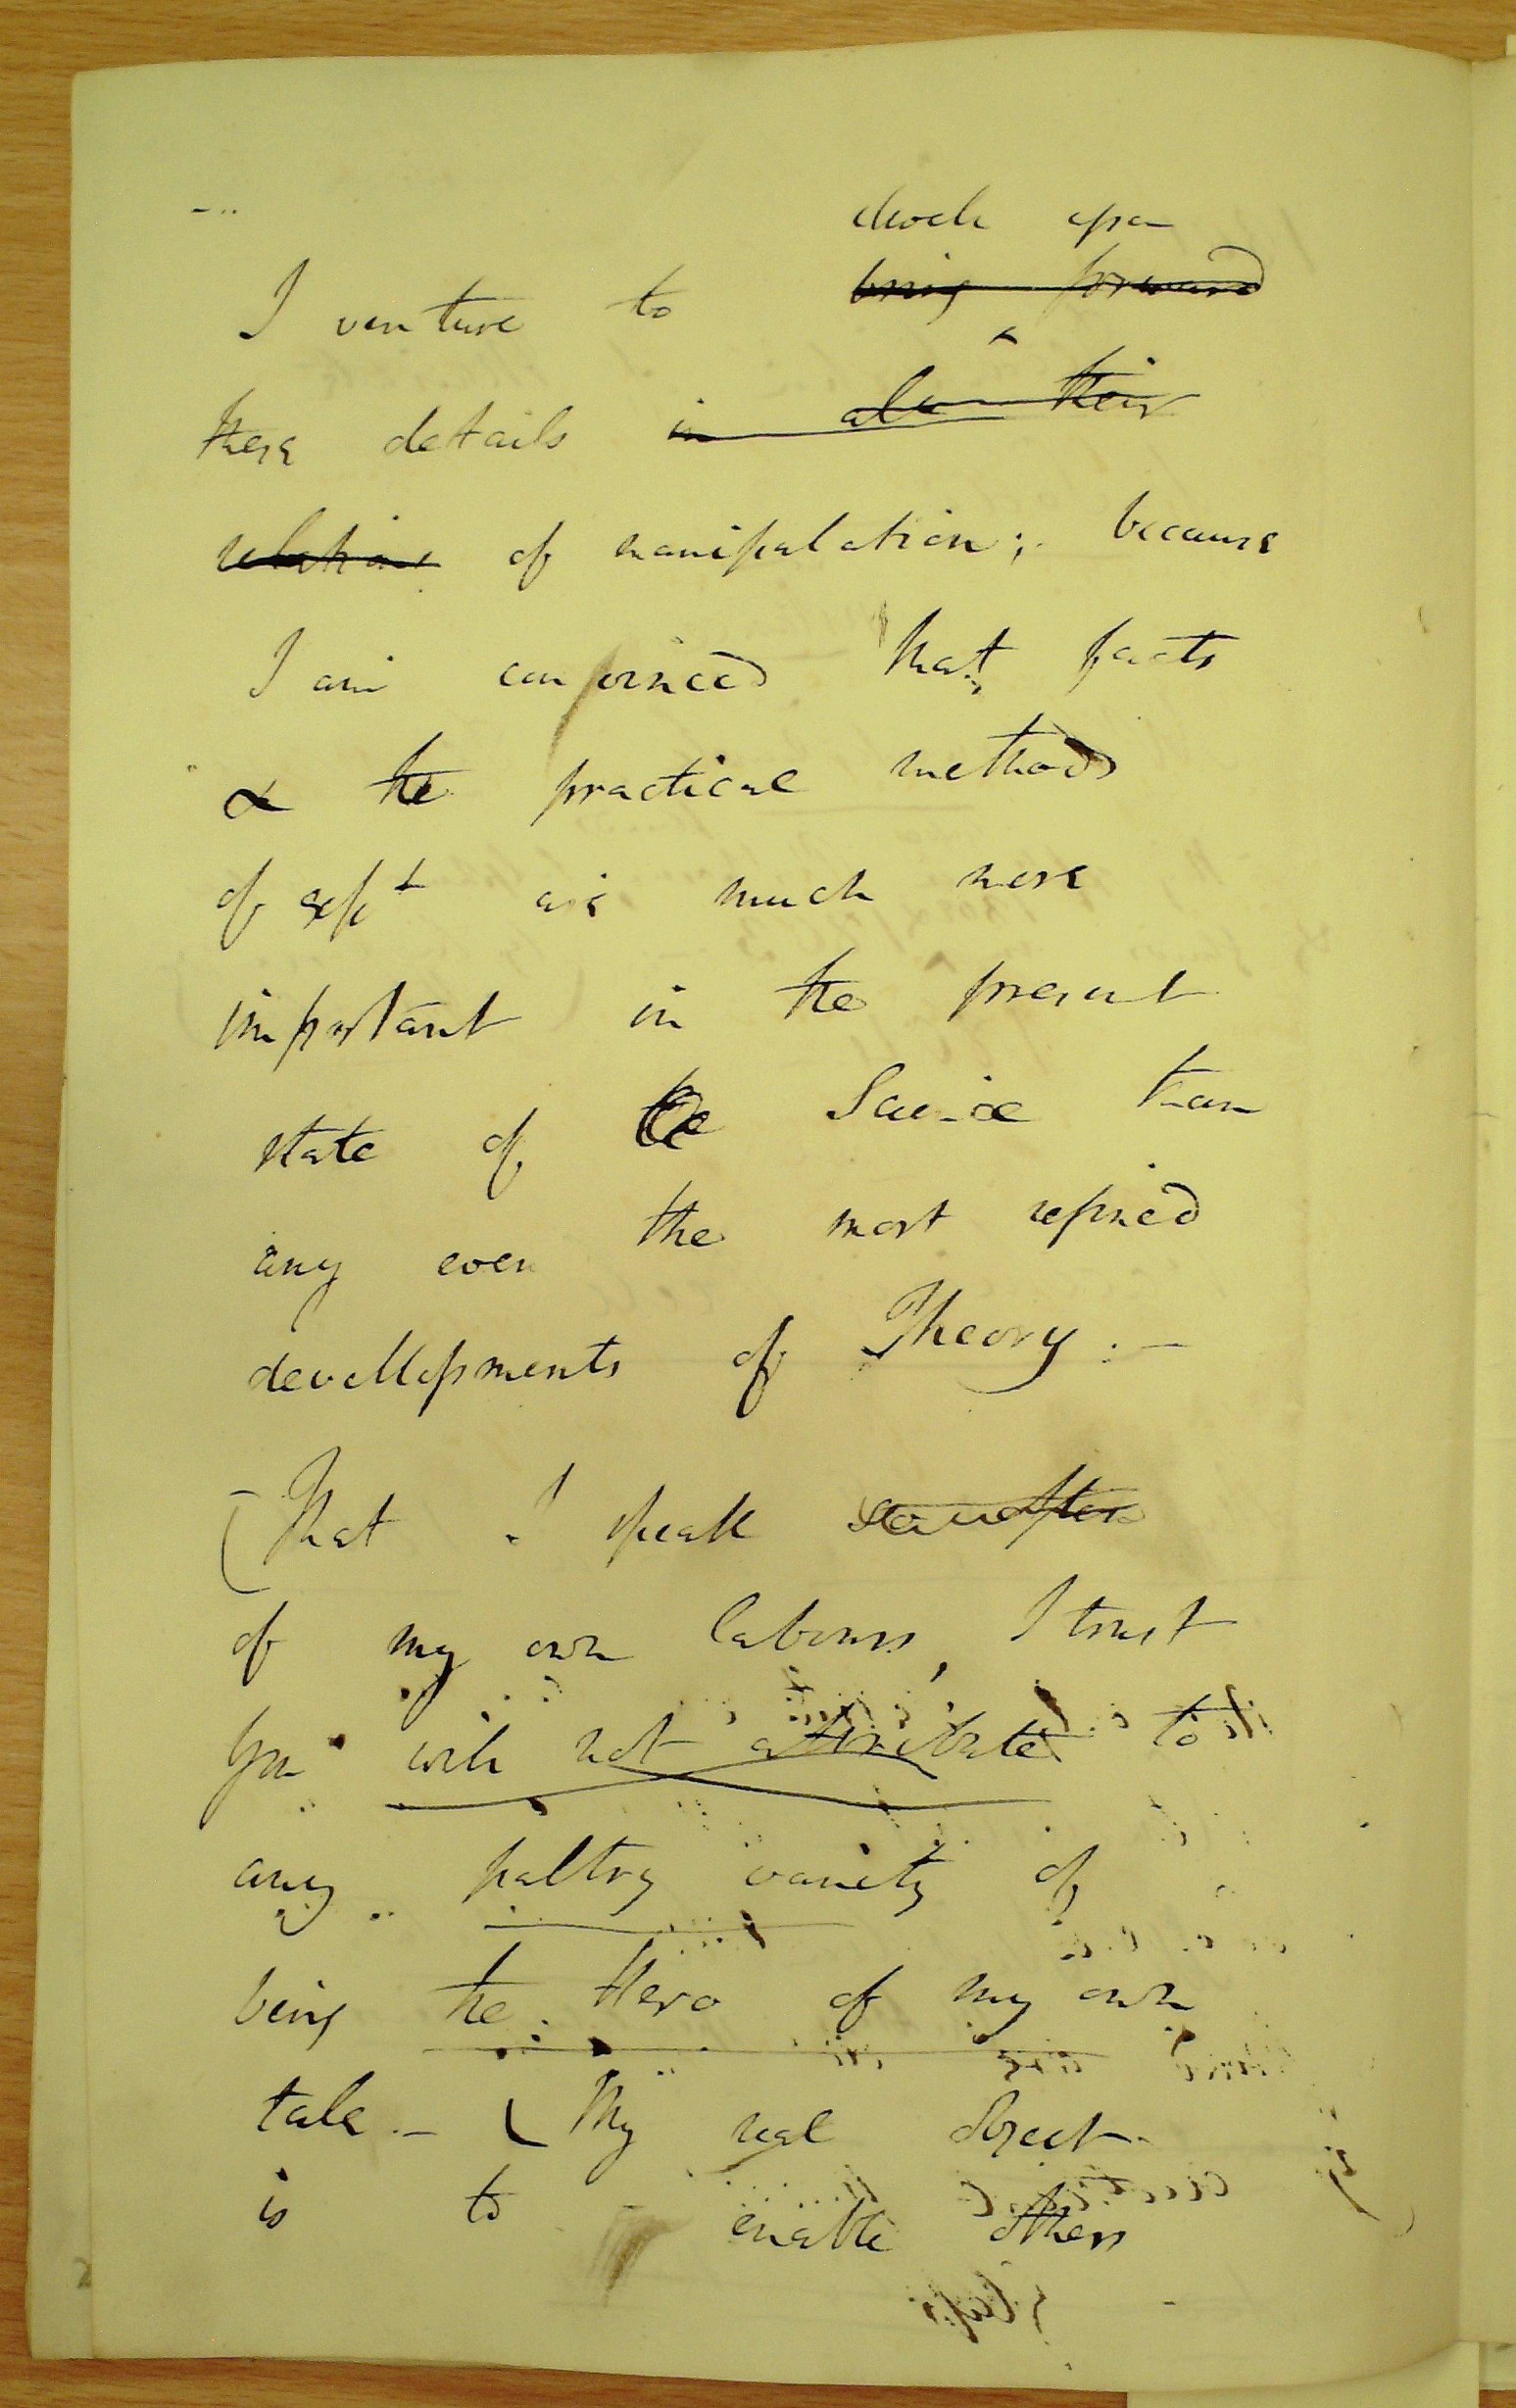 dwell upon
I venture to bring forward
these details in all their
relations of manipulation; because
I am convinced that facts
& the practical methods
of expt are much more
important in the present
state of the Science than
any even the most refined
devellopments of Theory. —
(That I speak
of my own labours, I trust
you will not attribute to
any paltry vanity of
being the Hero of my own
tale — (My real object
is to enable others